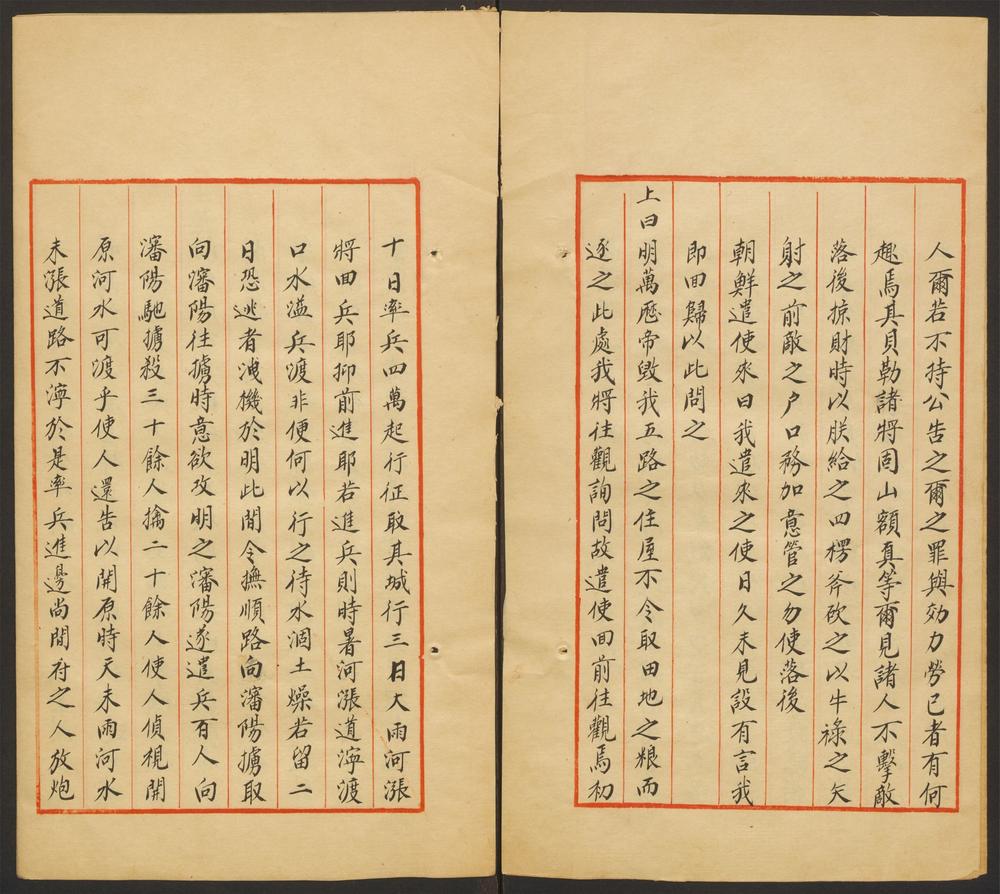 人爾若不持公告之爾之罪與効力勞已者有何
趣焉其貝勒諸將固山額真等爾見諸人不擊敵
落後掠財時以朕給之四楞斧砍之以牛祿之矢
射之前敵之户口務加意管之勿使落後
朝鮮遣使來曰我遣來之使日久未見設有言我
即回歸以此問之
上曰明萬歷帝毀我五路之住屋不令取田地之粮而
逐之此處我將往觀詢問故遣使回前往觀焉初
十日率兵四萬起行征取其城行三日大雨河漲
將回兵耶抑前進耶若進兵則時暑河漲道濘渡
口水溢兵渡非便何以行之待水涸土燥若留二
日恐逃者洩機於明此間令撫順路向瀋陽擄取
向瀋陽往擄時意欲攻明之瀋陽遂遣兵百人向
瀋陽馳擄殺三十餘人擒二十餘人使人偵視開
原河水可渡乎使人還告以開原時天未雨河水
未漲道路不濘於是率兵進邊尚間府之人放炮